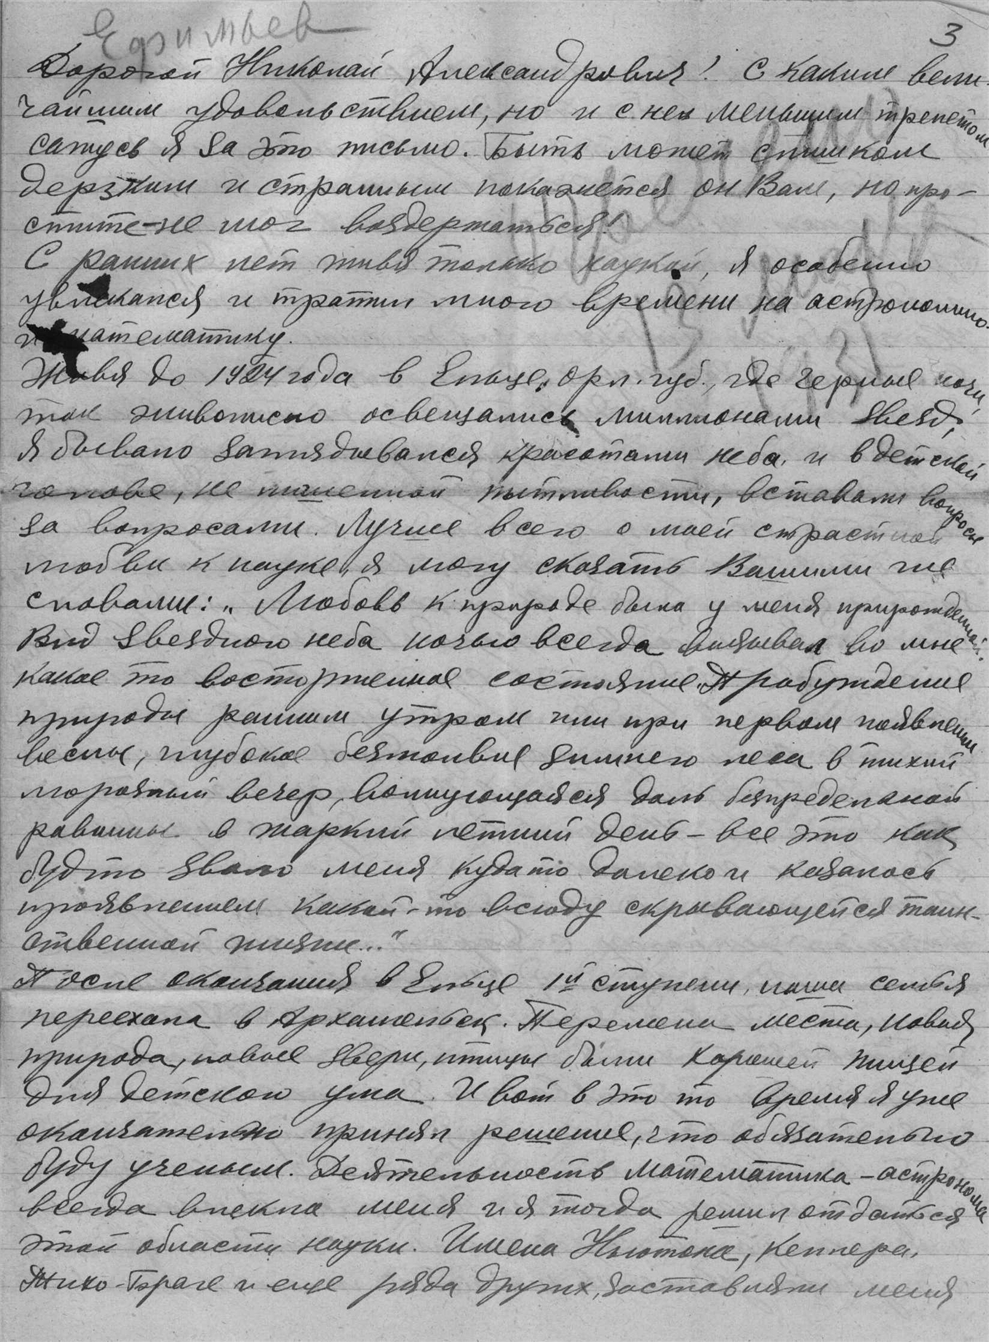 Ефимьев
3
Дорогой Николай Александрович! С каким вели-
чайшим удовольствием, но и с не меньшим трепетом
сажусь я за это письмо. Быть может слишком
дерзким и странным покажется он Вам, но про-
стите-не мог воздержаться!
С ранних лет живя только наукой, я особенно
увлекался и тратил много времени на астрономию
и математику.
Живя до 1924 года в Ельце, Орл. губ., где черные ночи,
так живописно освещались миллионами звезд,
я бывало заглядывался красотами неба, и в детской
голове, не лишенной пытливости, вставали вопросы
за вопросами. Лучше всего о моей страстной
любви к науке, я могу сказать Вашими же
словами: „Любовь к природе была у меня прирожденной.
Вид звездного неба ночью всегда вызывал во мне
какое то восторженное состояние. Пробуждение
природы ранним утром или при первом появлении
весны, глубокое безмолвие зимнего леса в тихий
морозный вечер, волнующаяся даль беспредельной
равнины в жаркий летний день - все это как
будто звало меня куда то далеко и казалось
проявлением какой-то всюду скрывающейся таин-
ственной жизни..."
После окончания в Ельце 1й ступени, наша семья
переехала в Архангельск. Перемена места, новая
природа, новые звери, птицы были хорошей пищей
для детского ума. И вот в это то время я уже
окончательно принял решение, что обязательно
буду ученым. Деятельность математика - астронома
всегда влекла меня и я тогда решил отдаться
этой области науки. Имена Ньютона, Кеплера,
Тихо-Браге и еще ряда других, заставляли меня